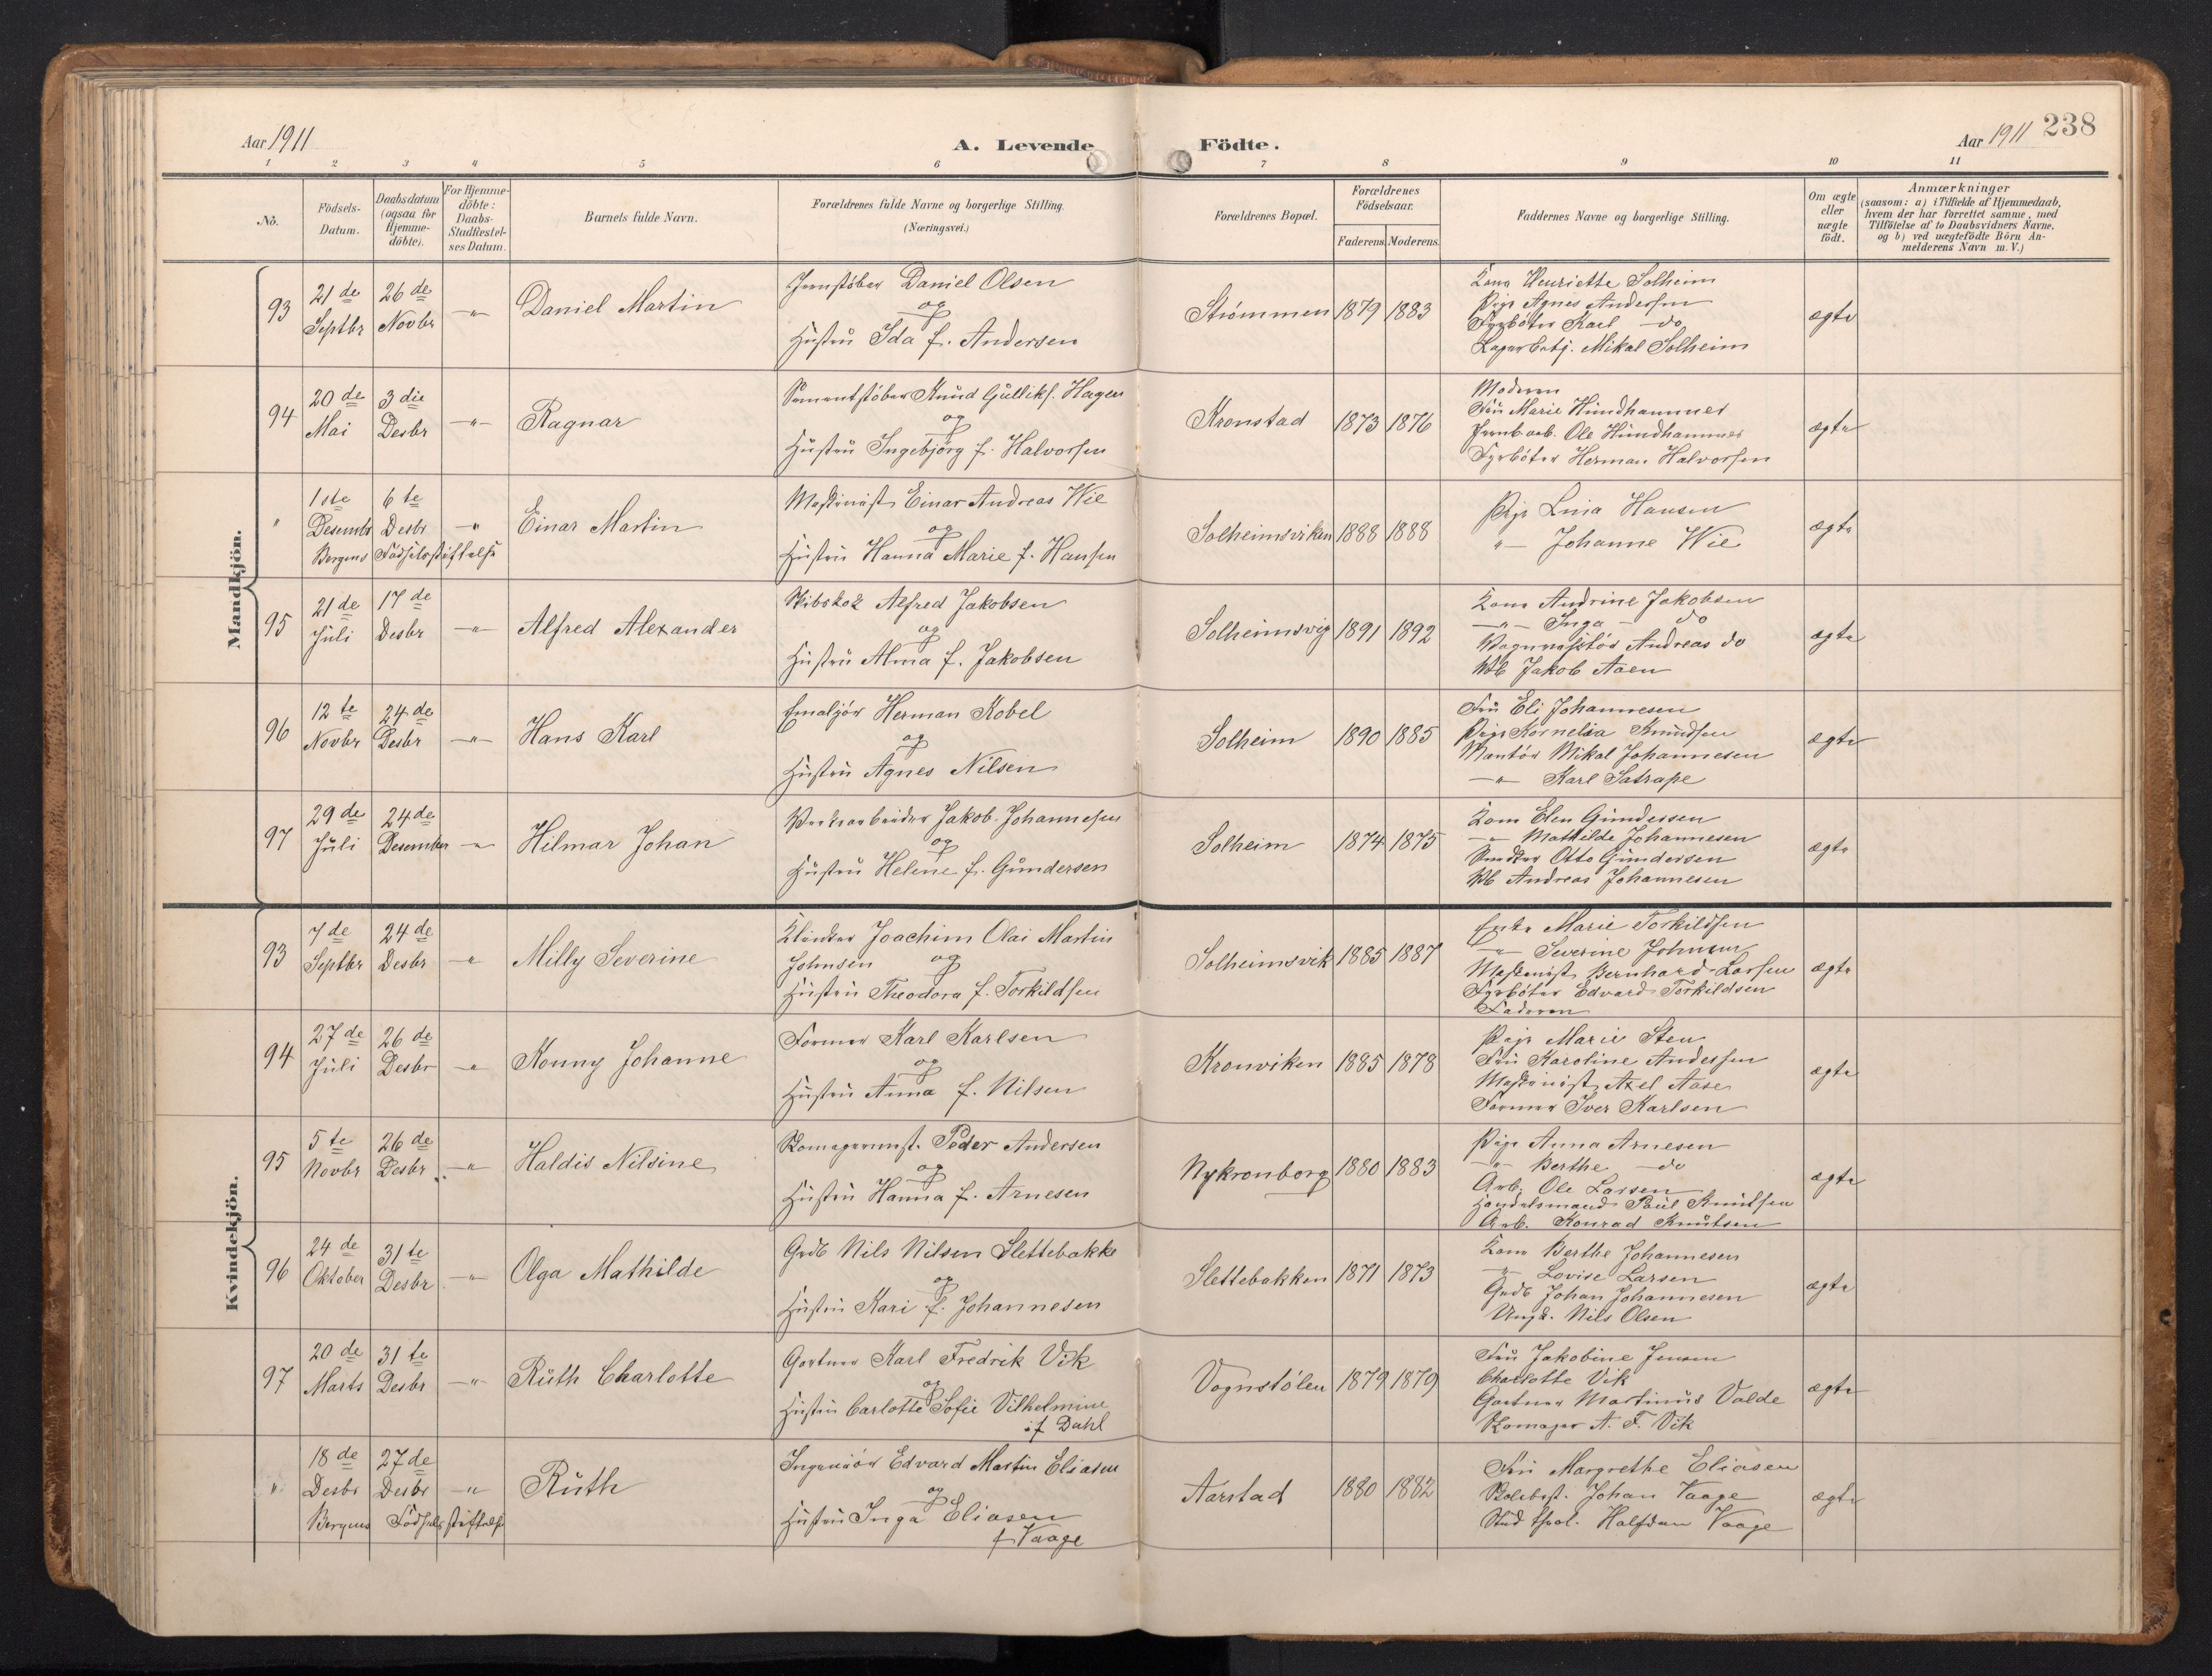 Aar 1911
A. Levende Födte.
Aar 1911 238
1 2 3 4 5 6 7 8 9 10 11
No.
Födsels-Datum.
Daabsdatum (ogsaa for Hjemme-döbte).
For Hjemme-döbte: Daabs-Stadfæstel-ses Datum.
Barnets fulde Navn.
Forældrenes fulde Navne og borgerlige Stilling. (Næringsvei.)
Forældrenes Bopæl.
Forældrenes Födselsaar.
Faderens. Moderens.
Faddernes Navne og borgerlige Stilling.
Om ægte eller uægte födt.
Anmærkninger
(saasom: a) i Tilfælde af Hjemmedaab,
hvem der har forrettet samme, med
Tilföielse af to Daabsvidners Navne,
og b) ved uægtefödte Börn An-
melderens Navn m. V.)
Mandkjön.
93 21de Septbr 26de Novbr -"- Daniel Martin
Jernstöber Daniel Olsen
og
Hustru Ida f. Andersen
Strømmen 1879 1883
Kone Henriette Solheim
Pige Agnes Andersen
Fyrböter Karl do
Lagerbetj. Mikal Solheim
ægte
94 20de Mai 3die Desbr -"- Ragnar
Sementstöber Knud Gulliks. Hagen
og
Hustru Ingebjörg f. Halvorsen
Kronstad 1873 1876
Moderen
Fru Marie Hundhammer
Jernb.arb. Ole Hundhammer
Fyrböter Herman Halvorsen
ægte
" 1ste Desembr 6te Desbr -"- Einar Martin
Bergens Födselsstiftelse
Maskinist Einar Andreas Wie
og
Hustru Hanna Marie f. Hansen
Solheimsviken 1888 1888
Pige Lina Hansen
-"- Johanne Wie
ægte
95 21de Juli 17de Desbr -"- Alfred Alexander
Skibskok Alfred Jakobsen
og
Hustru Alma f. Jakobsen
Solheimsvig 1891 1892
Kone Andrine Jakobsen
-"- Inga do
Andreas do
Jakob Aaen
ægte
96 12te Novbr 24de Desbr -"- Hans Karl
Emaljör Herman Kobel
og
Hustru Agnes Nilsen
Solheim 1890 1885
Fru Eli Johannesen
Pige Kornelia Knudsen
Montör Mikal Johannesen
-"- Karl Satrape
ægte
97 29de Juli 24de Desember -"- Hilmar Johan
Verksarbeider Jakob Johannesen
og
Hustru Helene f. Gundersen
Solheim 1874 1875
Kone Elen Gundersen
-"- Mathilde Johannesen
Snedker Otto Gundersen
Andreas Johannesen
ægte
Kvindekjön.
93 7de Septbr 24de Desbr -"- Milly Severine
Klinker Joachim Olai Martin
Johnsen og
Hustru Theodora f. Torkildsen
Solheimsvik 1885 1887
Enke Marie Torkildsen
-"- Severine Johnsen
Maskinist Bernhard Larsen
Fyrböter Edvard Torkildsen
Faderen
ægte
94 27de Juli 26de Desbr -"- Konny Johanne
Former Karl Karlsen
og
Hustru Anna f. Nilsen
Kronviken 1885 1878
Pige Marie Sten
Fru Karoline Andersen
Maskinist Axel Aase
Former Iver Karlsen
ægte
95 5te Novbr 26de Desbr -"- Haldis Nilsine
Skomagermst. Peder Andersen
og
Hustru Hanna f. Arnesen
Nykronborg 1880 1883
Pige Anna Arnesen
-"- Berthe do
Arb. Ole Larsen
Handelsmand Paul Knudsen
Arb. Konrad Knutsen
ægte
96 24de Oktober 31te Desbr -"- Olga Mathilde
Grdb Nils Nilsen Slettebakke
og
Hustru Kari f. Johannesen
Slettebakken 1871 1873
Kone Berthe Johannesen
-"- Lovise Larsen
Grdb Johan Johannesen
Ungk. Nils Olsen
ægte
97 20de Marts 31te Desbr -"- Ruth Charlotte
Gartner Karl Fredrik Vik
og
Hustru Carlotte Sofie Vilhelmine
f Dahl
Vognstölen 1879 1879
Fru Jakobine Jensen
Charlotte Vik
Gartner Martinus Valde
Skomager A. F. Vik
ægte
" 18de Desbr 27de Desbr -"- Ruth
Bergens Födselsstiftelse
Ingeniör Edvard Martin Eliasen
og
Hustru Inga Eliasen
f Vaage
Aarstad 1880 1882
Fru Margrethe Eliasen
Johan Vaage
Stud. Halfdan Vaage
ægte